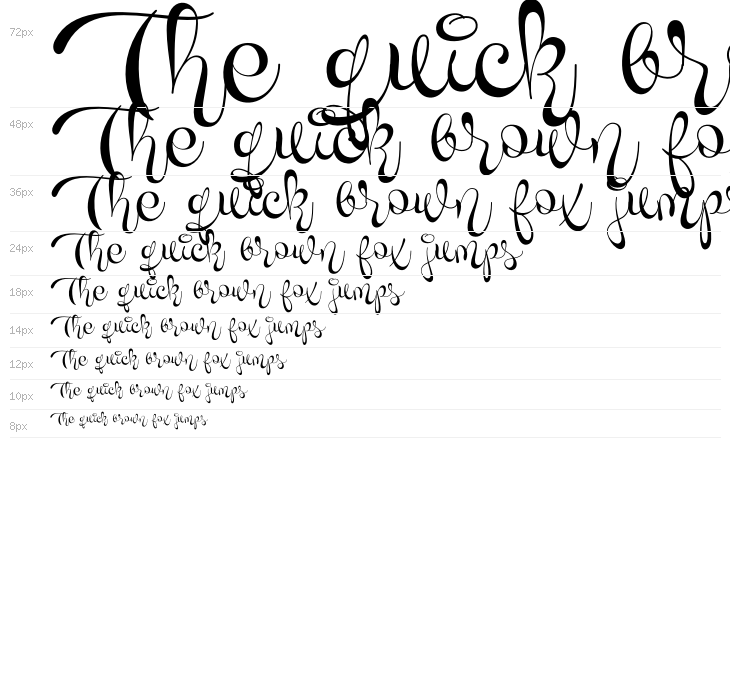 72px The quick br
48px The quick brown fo
36px The quick brown fox jumps
24px The quick brown fox jumps
18px The quick brown fox jumps
14px The quick brown fox jumps
12px The quick brown fox jumps
10px The quick brown fox jumps
8px The quick brown fox jumps